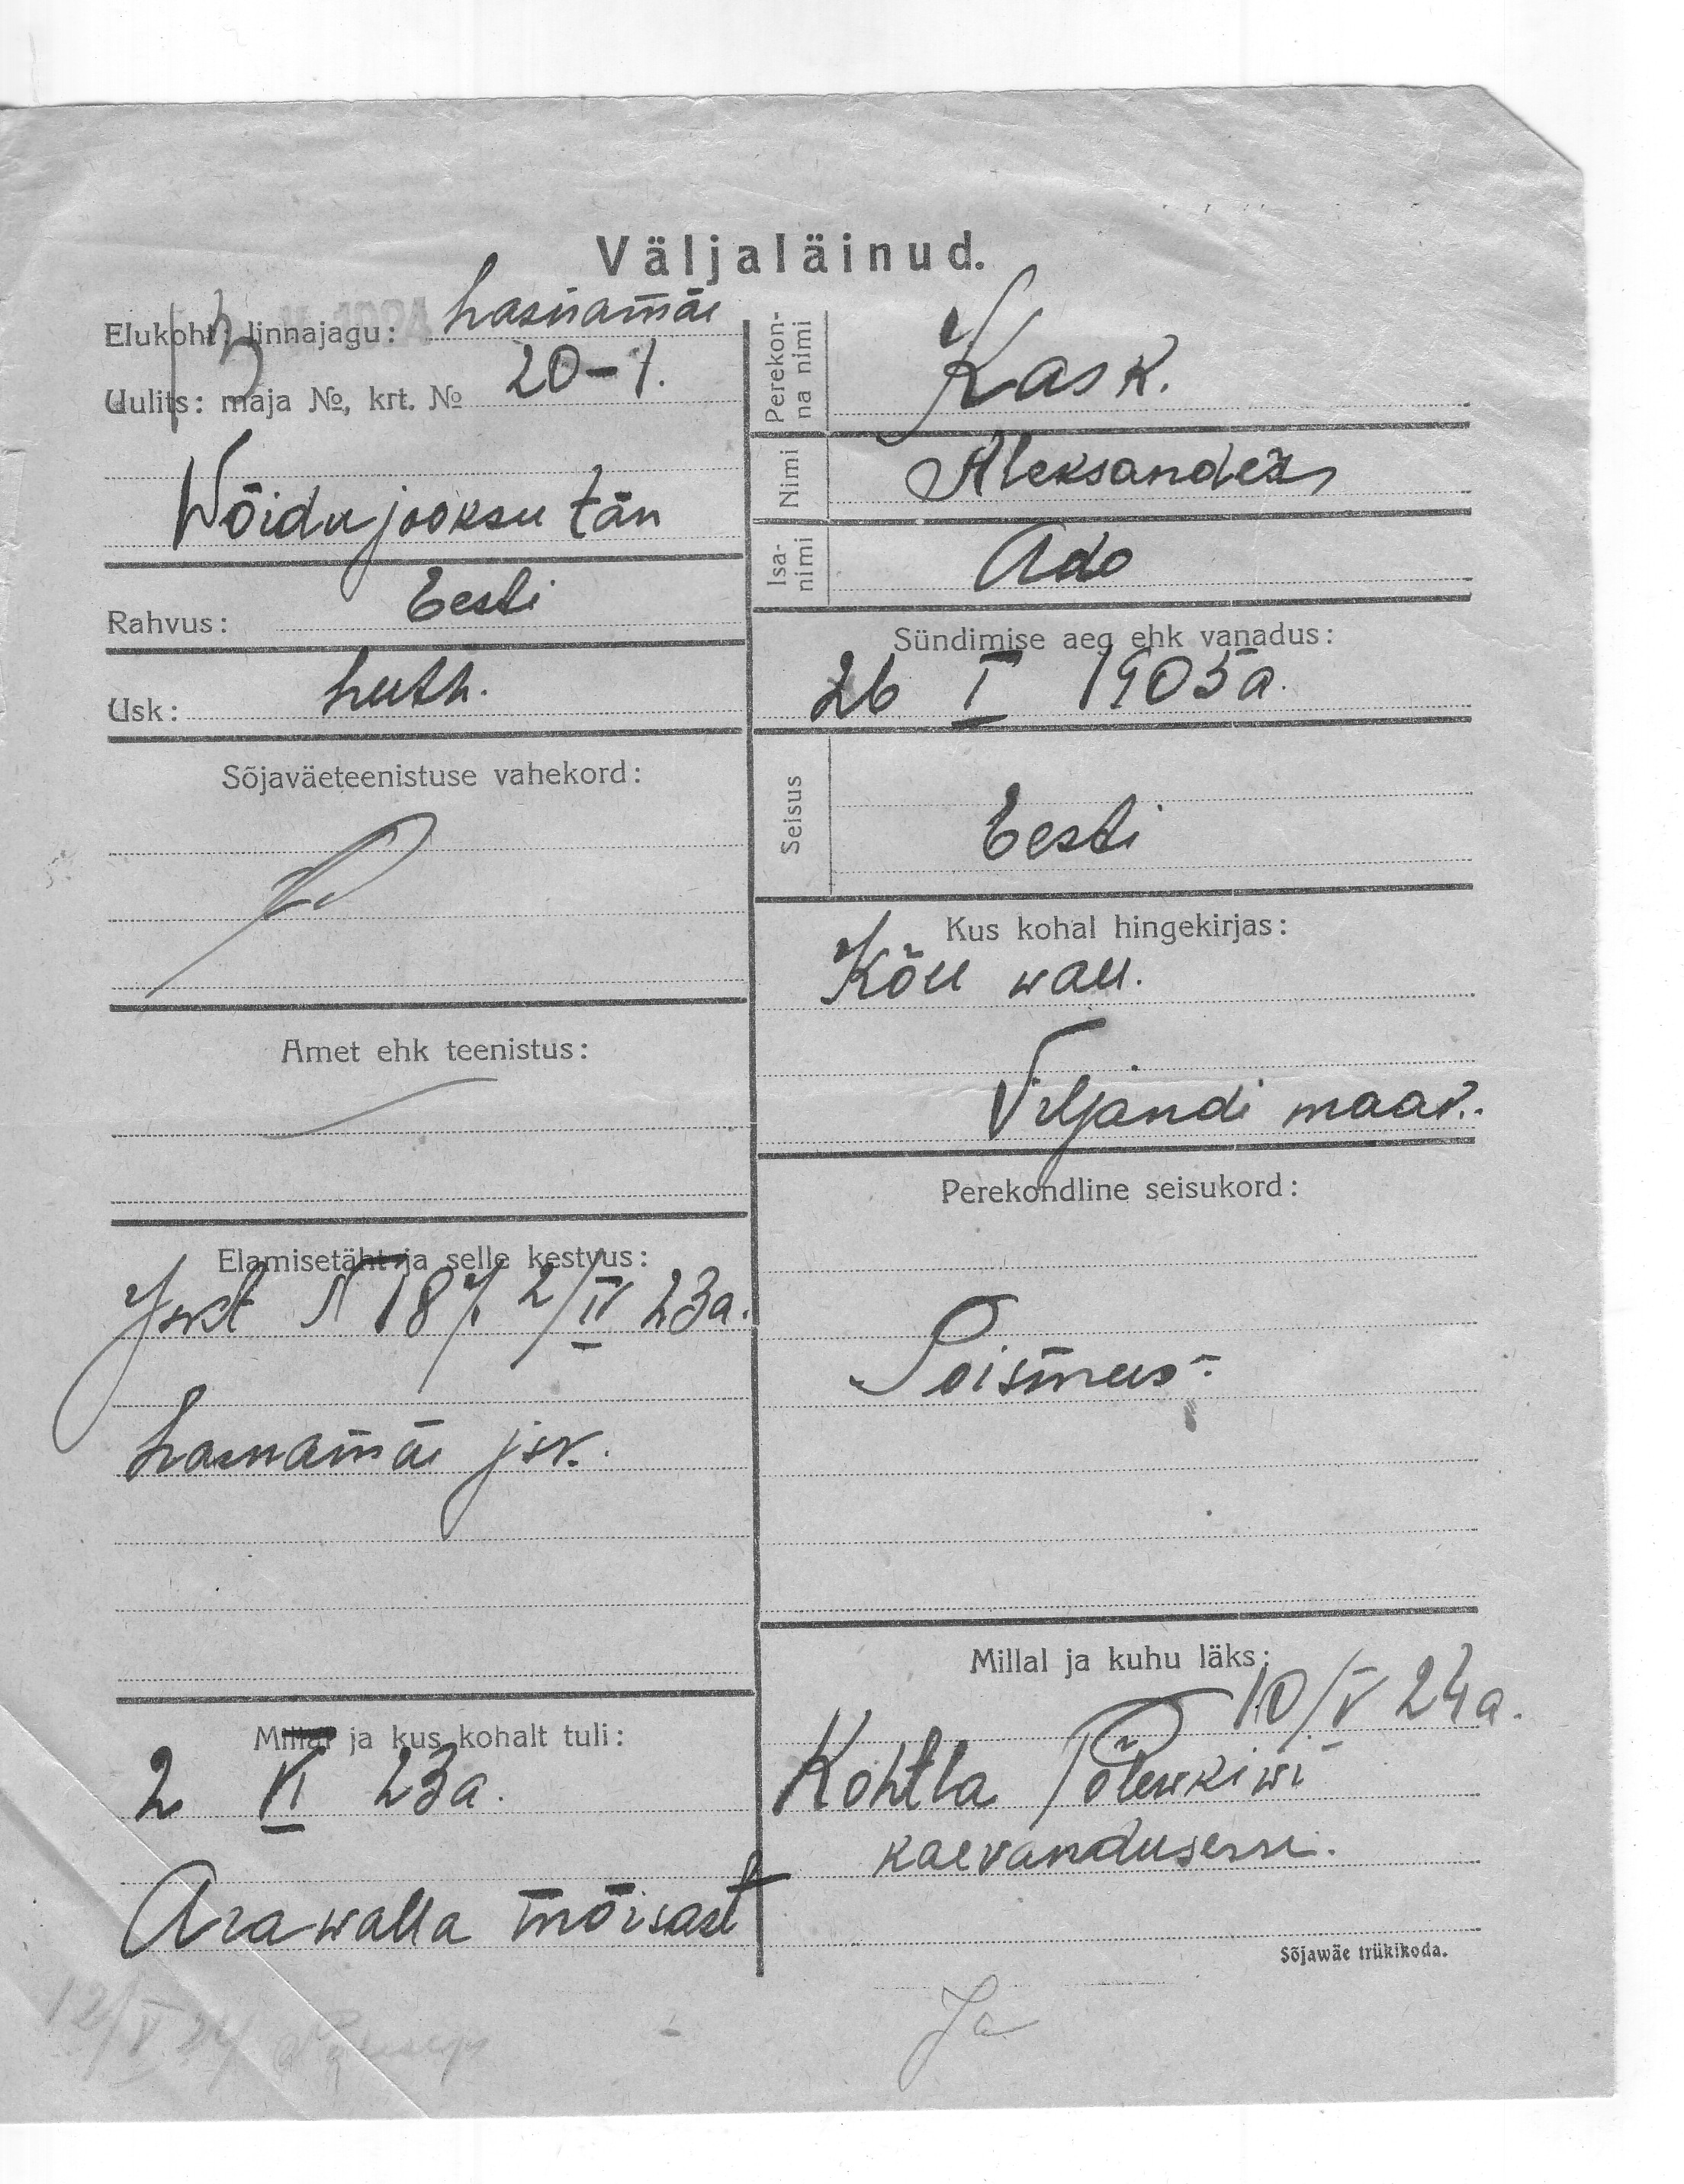 Väljaläinud.
Elukoht: linnajagu: Lasnamäe
Uulits: maja №, krt. № 20-1.
Wõidujooksu tän
Rahvus: Eesti
Usk: Luth.
Sõjaväeteenistuse vahekord:
Amet ehk teenistus:
Elamisetäht ja selle kestvus:
N 187 2/IV 23a.
Lasnamäe jsk.
Millal ja kus kohalt tuli:
2 VI 23a.
Arawalla mõisast
Perekonna nimi Kask.
Nimi Aleksander
Isanimi Ado
Sündimise aeg ehk vanadus:
26 I 1905a.
Seisus Eesti
Kus kohal hingekirjas:
Kõu wall.
Viljandi maak.
Perekondline seisukord:
Poismees.
Millal ja kuhu läks:
10/V 24a.
Kohtla Põlewkiwi
kaevandusesse.
Sõjawäe trükikoda.
Ja